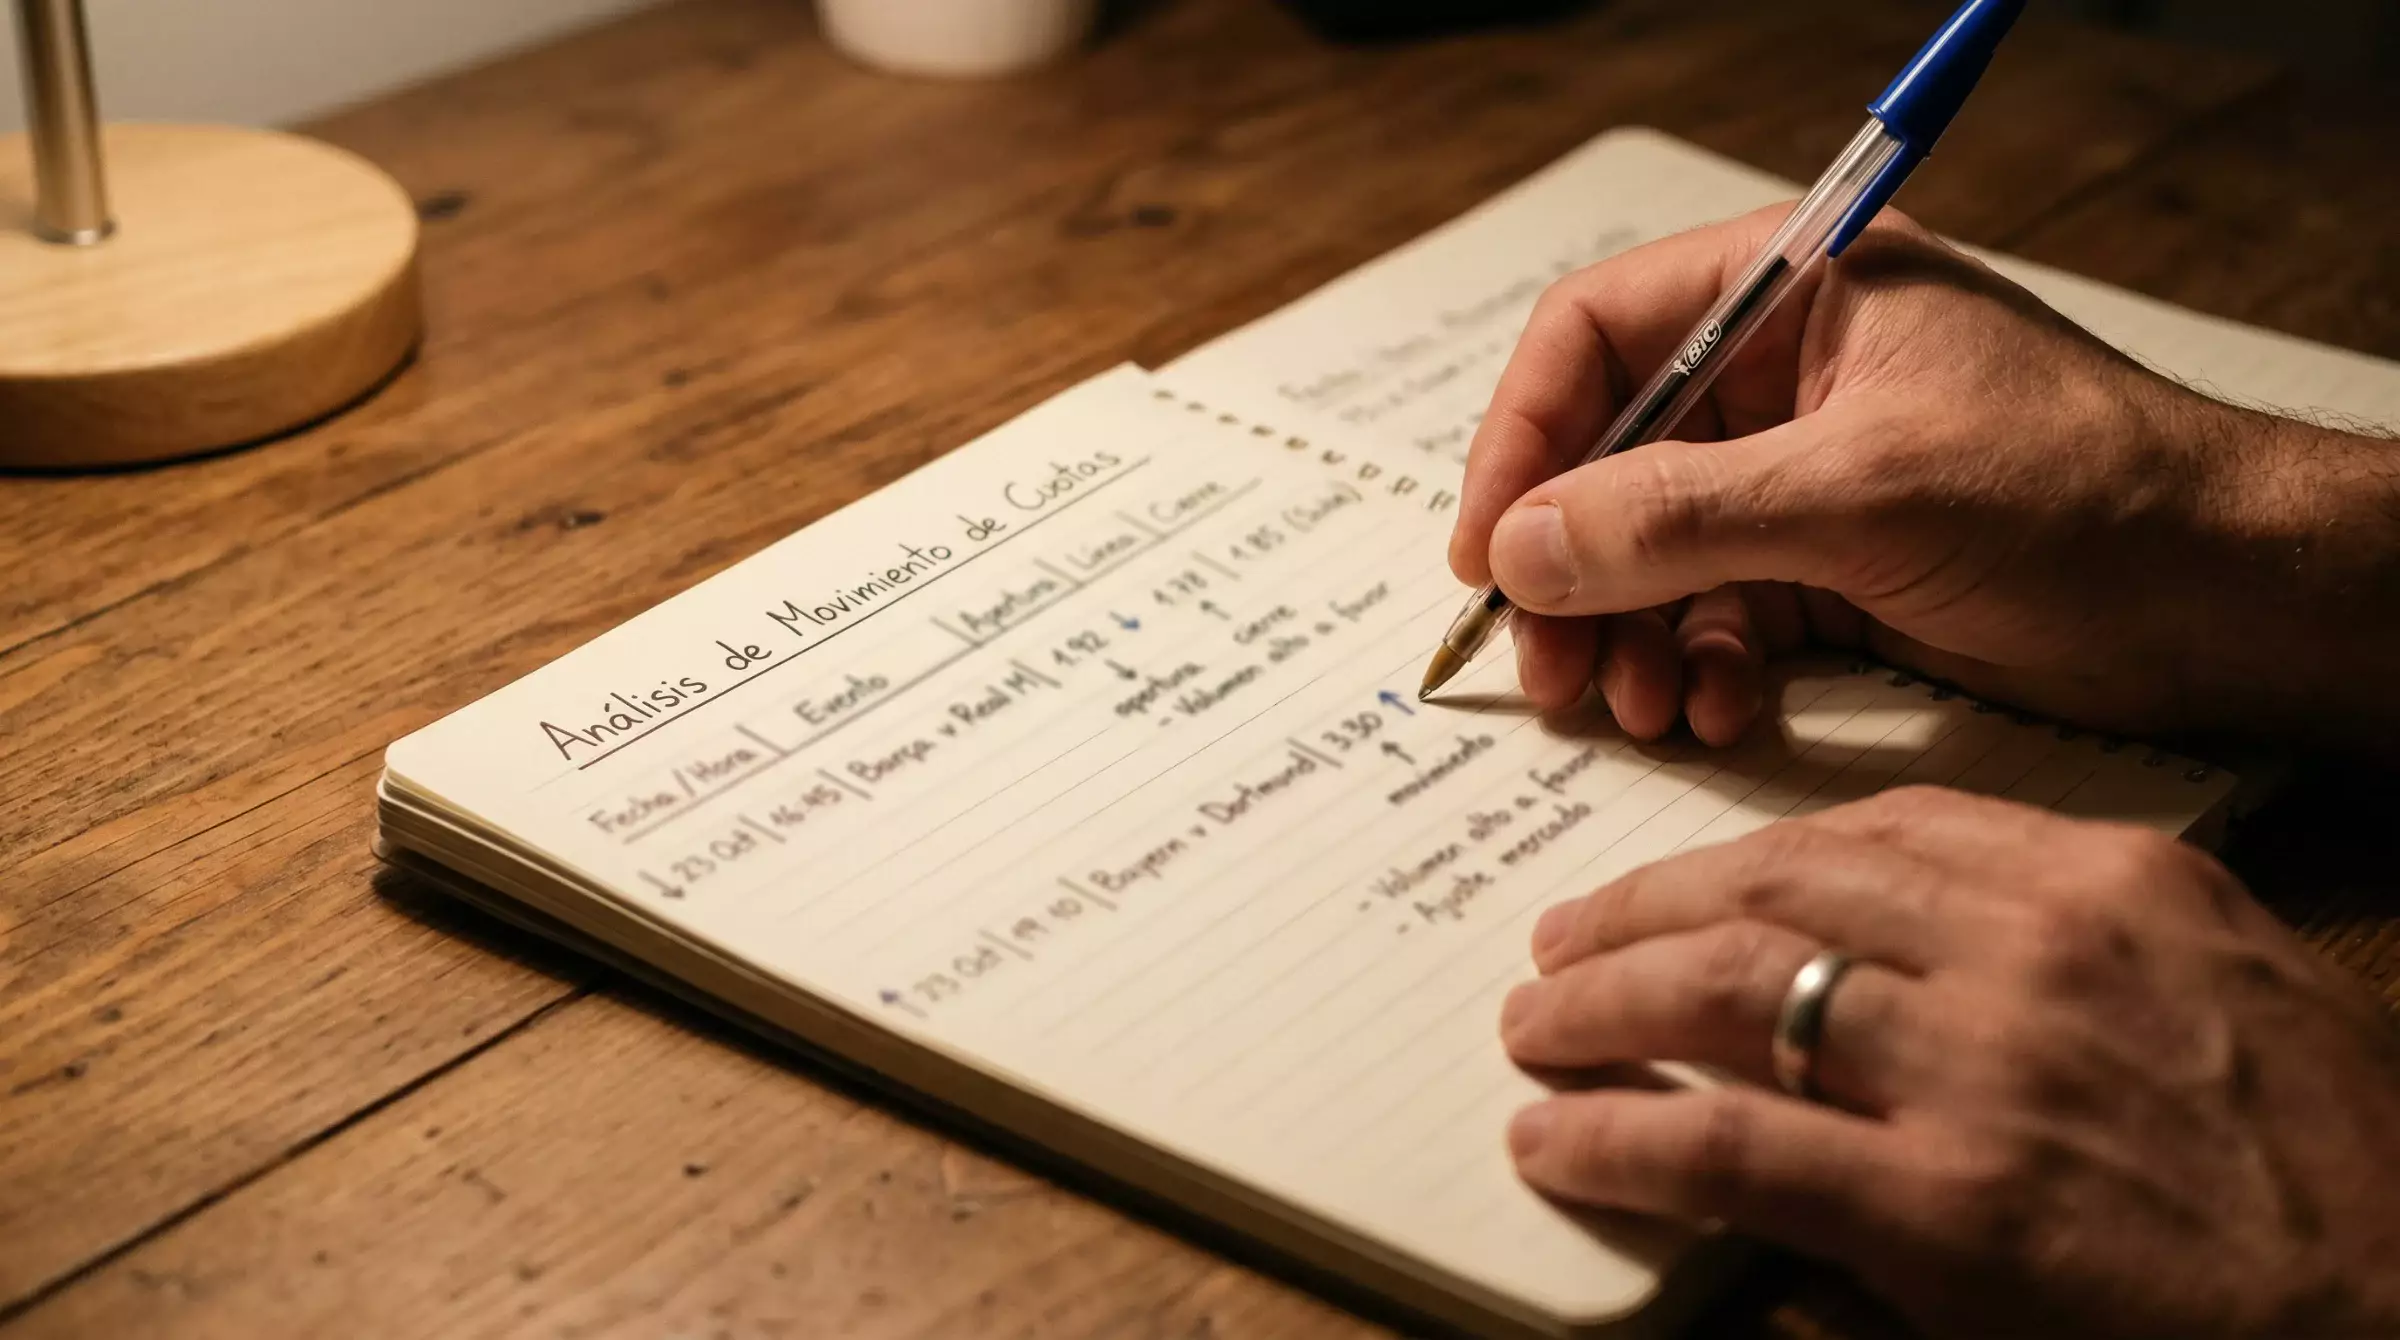 Análisis de Movimiento de Cuotas
Fecha/Hora | Evento | Apertura | Línea | Cierre
↓ 23 Oct | 16:45 | Barça v Real M | 1.92 ↓ 1.78 | 1.85 (Sube)
↓ ↑
apertura cierre
- Volumen alto a favor
↑ 23 Oct | 19:10 | Bayern v Dortmund | 3.30 ↑
↑
movimiento
- Volumen alto a favor
- Ajuste mercado
BIC